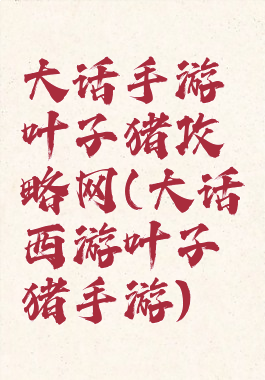 大话手游
叶子猪攻
略网(大话
西游叶子
猪手游)